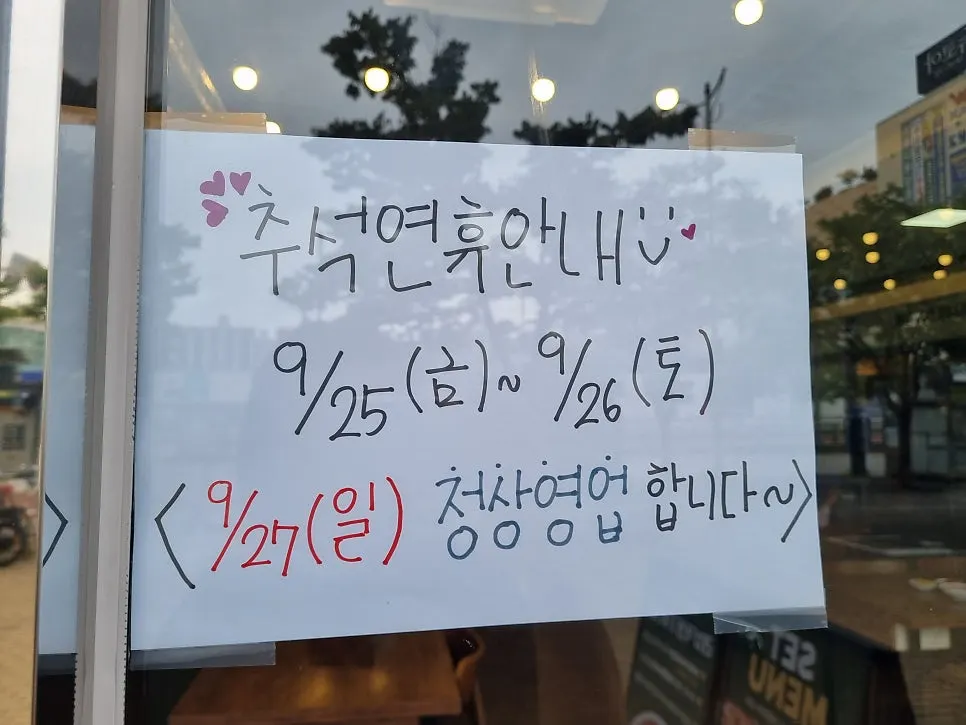 추석연휴안내
9/25(금)~ 9/26(토)
<9/27(일) 청상영업 합니다~>
SET
MENU